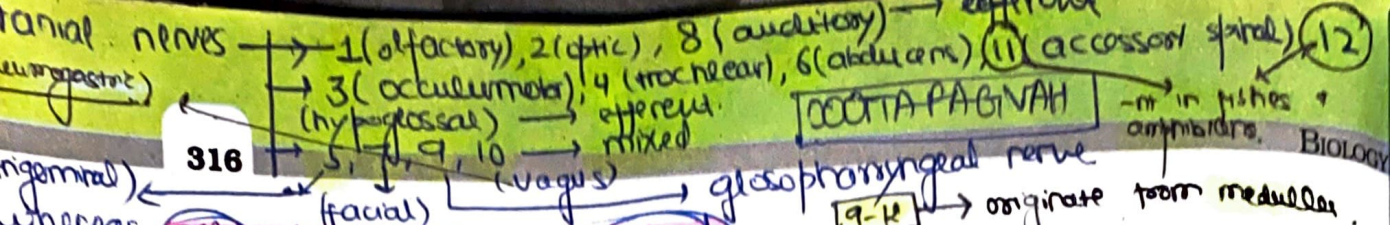 anial nerves → 1(olfactory), 2(optic), 8(auditory) →
eumogastric) → 3(occulumotor), 4(trochlear), 6(abducens), 11(accessori spinal) 12
(hypoglossal) → efferent. OOOTTAFAGVAH → in fishes &
316 → 5, 7, 9, 10 → mixed amphibians. BIOLOGY
rigeminal) (facial) (vagus) → glosopharyngeal nerve
9-12 → originate from medulla.